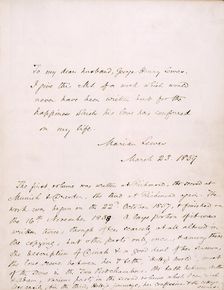 To my dear husband, George Henry Lewes,
I give this M.S. of a work which would
never have been written but for the
happiness which his love has conferred
on my life.
Marian Lewes
March 23. 1859
The first volume was written at Richmond, the second at
Munich & Dresden, the third at Richmond again. The
work was begun on the 22nd October 1857, & finished on
the 16th November 1858. A large portion of it was
written twice, though often scarcely at all altered in
the copying; but other parts only once, & among these
the description of Dinah & a good deal of her sermon,
the love-scene between her & Seth, "Hetty's world", most
of the scene in the Two Bedchambers, the talk between